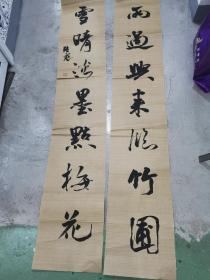 雨過興來臨竹圃
雪晴沾墨點梅花